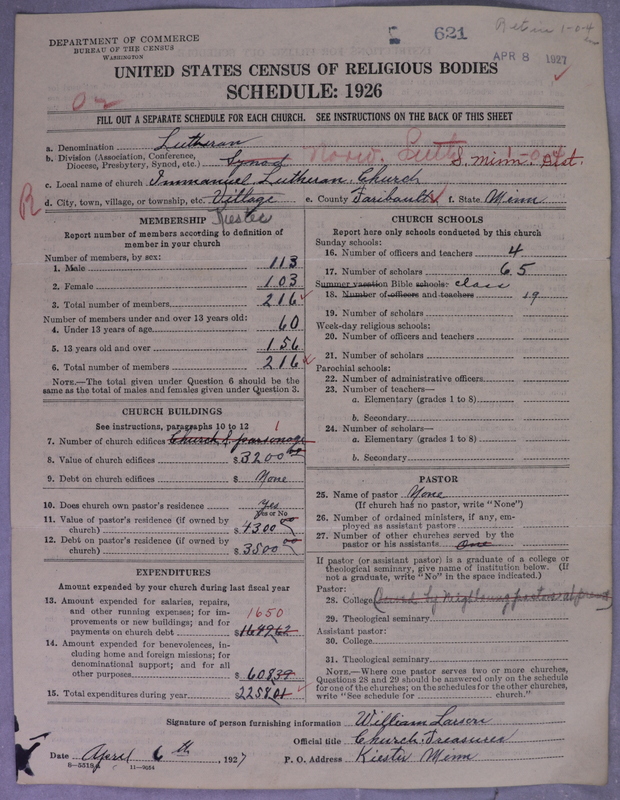 621
APR 8 1927
DEPARTMENT OF COMMERCE
BUREAU OF THE CENSUS
WASHINGTON
UNITED STATES CENSUS OF RELIGIOUS BODIES
SCHEDULE: 1926
FILL OUT A SEPARATE SCHEDULE FOR EACH CHURCH. SEE INSTRUCTIONS ON THE BACK OF THIS SHEET
a. Denomination Lutheran
b. Division (Association, Conference, Diocese, Presbytery, Synod, etc.) Synod Norw. Luth. S. Minn. Dist.
c. Local name of church Immanuel Lutheran Church
d. City, town, village, or township, etc. Village Kiester e. County Faribault f. State Minn
R
MEMBERSHIP
Report number of members according to definition of member in your church
Number of members, by sex:
1. Male 113
2. Female 103
3. Total number of members 216
Number of members under and over 13 years old:
4. Under 13 years of age 60
5. 13 years old and over 156
6. Total number of members 216
NOTE.—The total given under Question 6 should be the same as the total of males and females given under Question 3.
CHURCH BUILDINGS
See instructions, paragraphs 10 to 12
7. Number of church edifices Church & parsonage 1
8. Value of church edifices $3200 00
9. Debt on church edifices $ None
10. Does church own pastor's residence Yes
Yes or No
11. Value of pastor's residence (if owned by church) $4300 00
12. Debt on pastor's residence (if owned by church) $3500 00
EXPENDITURES
Amount expended by your church during last fiscal year
13. Amount expended for salaries, repairs, and other running expenses; for improvements or new buildings; and for payments on church debt 1650 $1649 62
14. Amount expended for benevolences, including home and foreign missions; for denominational support; and for all other purposes $608 39
15. Total expenditures during year $2258 01
CHURCH SCHOOLS
Report here only schools conducted by this church
Sunday schools:
16. Number of officers and teachers 4
17. Number of scholars 65
Summer vacation Bible schools: class
18. Number of officers and teachers 19
19. Number of scholars
Week-day religious schools:
20. Number of officers and teachers
21. Number of scholars
Parochial schools:
22. Number of administrative officers
23. Number of teachers—
a. Elementary (grades 1 to 8)
b. Secondary
24. Number of scholars—
a. Elementary (grades 1 to 8)
b. Secondary
PASTOR
25. Name of pastor None
(If church has no pastor, write "None")
26. Number of ordained ministers, if any, employed as assistant pastors
27. Number of other churches served by the pastor or his assistants one
If pastor (or assistant pastor) is a graduate of a college or theological seminary, give name of institution below. (If not a graduate, write "No" in the space indicated.)
Pastor:
28. College (Served by Neighboring pastor at present)
29. Theological seminary
Assistant pastor:
30. College
31. Theological seminary
NOTE.—Where one pastor serves two or more churches, Questions 28 and 29 should be answered only on the schedule for one of the churches; on the schedules for the other churches, write "See schedule for church."
Signature of person furnishing information William Larson
Official title Church Treasurer
Date April 6th, 1927 P. O. Address Kiester Minn
8—5518a 11—9684